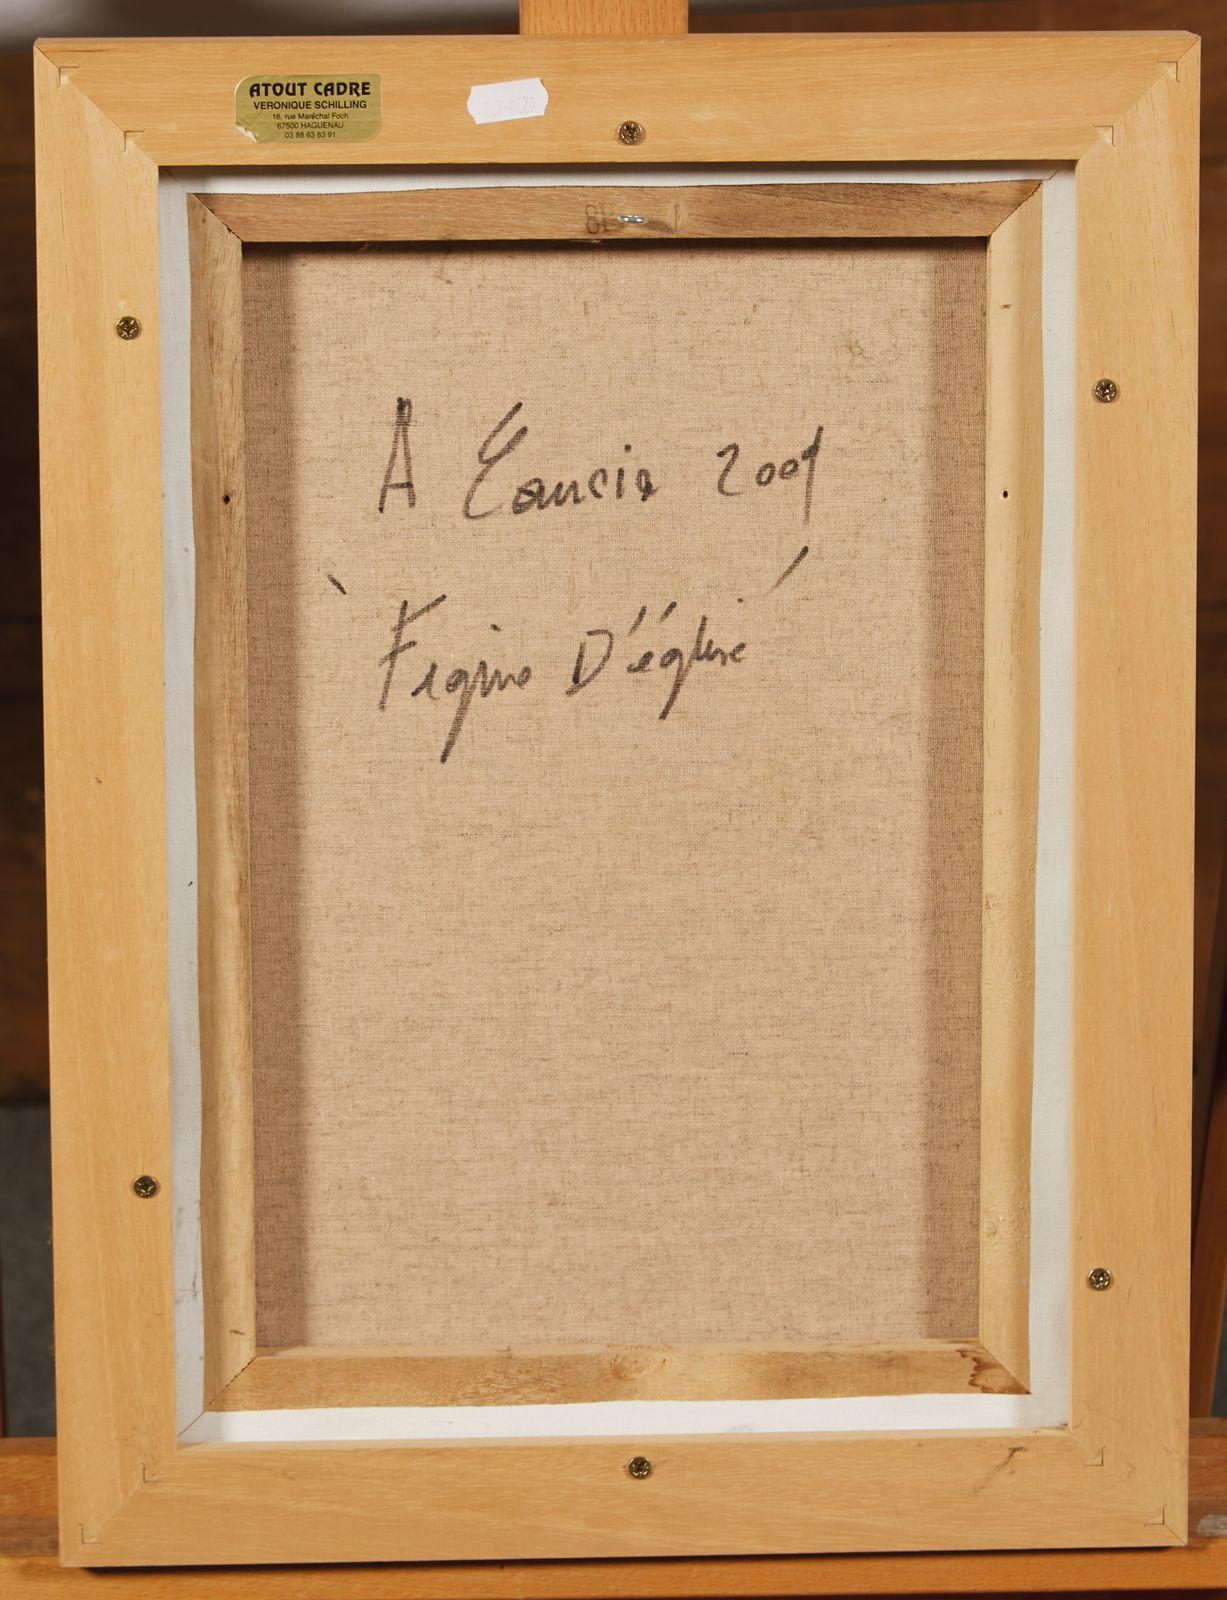 ATOUT CADRE
VERONIQUE SCHILLING
16, rue Maréchal Foch
67500 HAGUENAU
03 88 63 83 91
81
A 2001
D'église